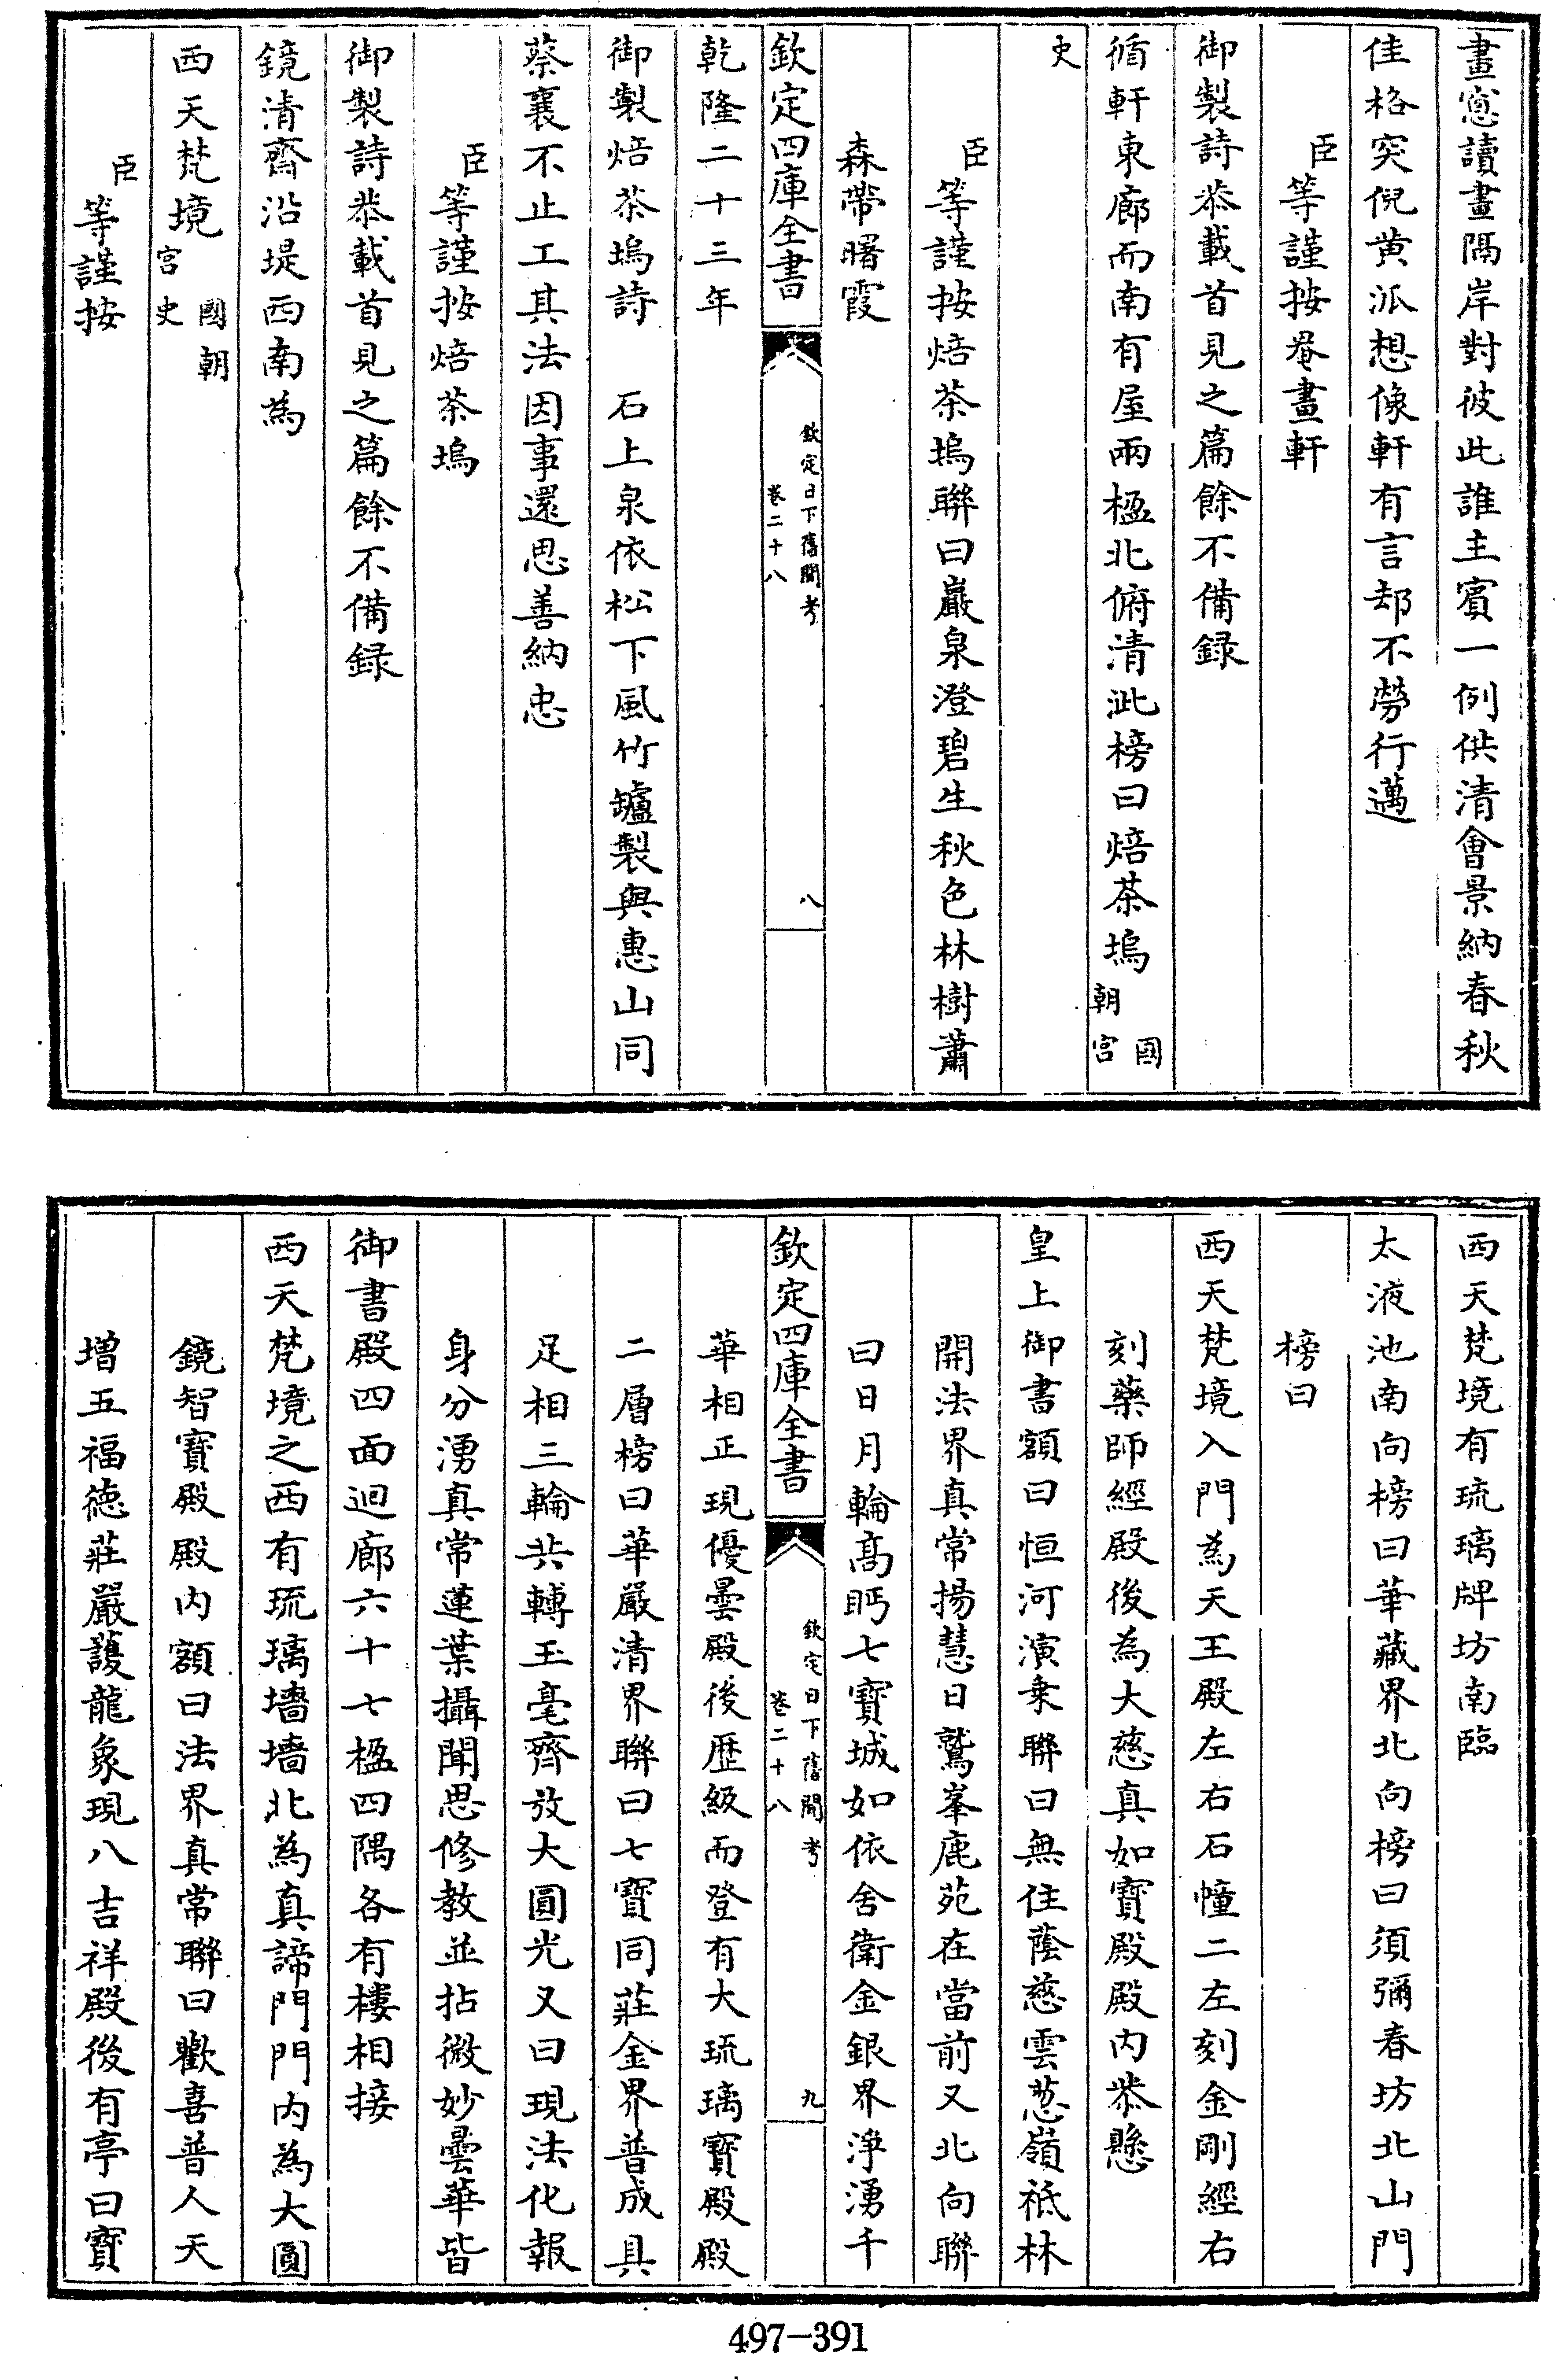 畫窻讀畫隔岸對彼此誰主賓一例供清會景納春秋
佳格突倪黄派想像軒有言却不勞行邁
臣等謹按罨畫軒
御製詩恭載首見之篇餘不備録
循軒東廊而南有屋兩楹北俯清泚榜曰焙茶塢國朝宮
史
臣等謹按焙茶塢聯曰巖泉澄碧生秋色林樹蕭
森帶曙霞
欽定四庫全書
欽定日下舊聞考
卷二十八
八
乾隆二十三年
御製焙茶塢詩 石上泉依松下風竹罏製與惠山同
蔡襄不止工其法因事還思善納忠
臣等謹按焙茶塢
御製詩恭載首見之篇餘不備録
鏡清齋沿堤西南為
西天梵境國朝宮史
臣等謹按
西天梵境有琉璃牌坊南臨
太液池南向榜曰華藏界北向榜曰須彌春坊北山門
榜曰
西天梵境入門為天王殿左右石幢二左刻金剛經右
刻藥師經殿後為大慈真如寶殿殿内恭懸
皇上御書額曰恒河演乗聯曰無住蔭慈雲葱嶺祗林
開法界真常揚慧日鷲峯鹿苑在當前又北向聯
曰日月輪高眄七寶城如依舍衛金銀界淨湧千
欽定四庫全書
欽定日下舊聞考
卷二十八
九
華相正現優曇殿後歴級而登有大琉璃寶殿殿
二層榜曰華嚴清界聯曰七寶同莊金界普成具
足相三輪共轉玉毫齊放大圓光又曰現法化報
身分湧真常蓮葉攝聞思修教並拈微妙曇華皆
御書殿四面迴廊六十七楹四隅各有樓相接
西天梵境之西有琉璃墻墻北為真諦門門内為大圓
鏡智寶殿殿内額曰法界真常聯曰歡喜普人天
増五福徳莊嚴護龍象現八吉祥殿後有亭曰寶
497-391